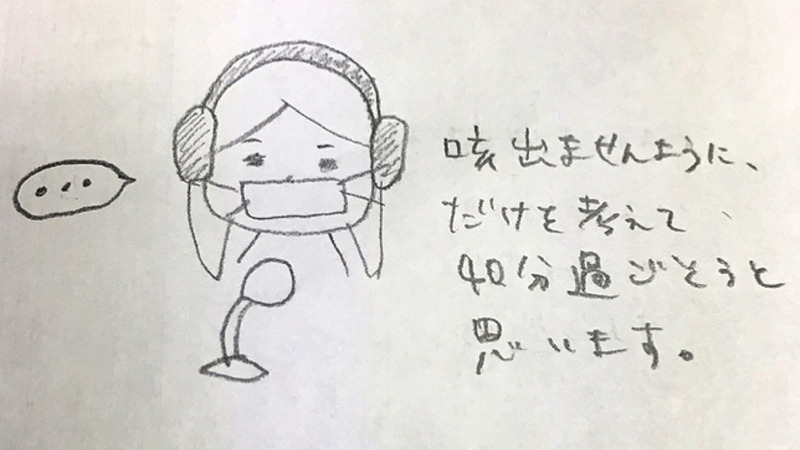 咳出ませんように、
だけを考えて、
40分過ごそうと
思います。